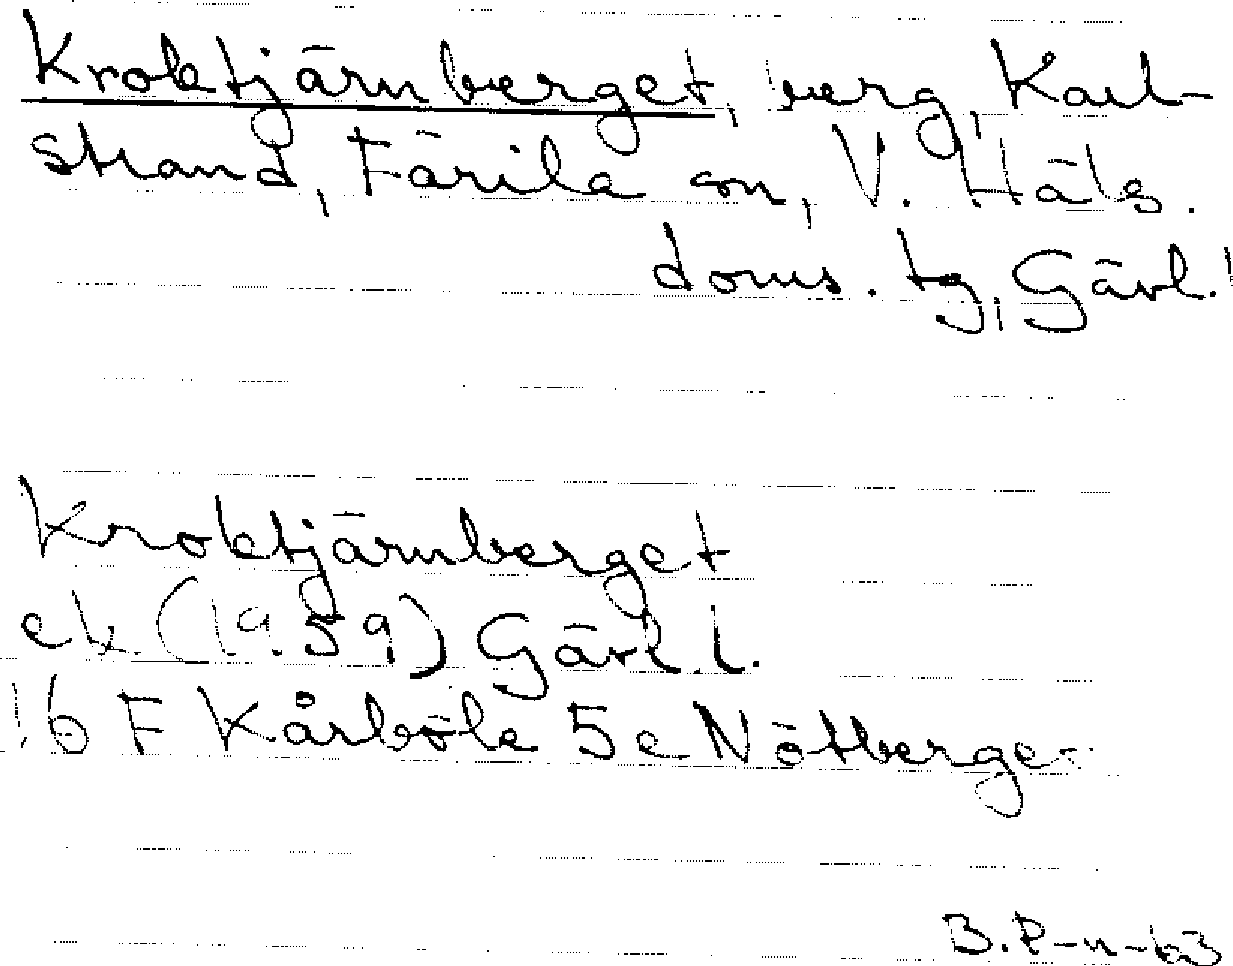 Kroktjärnberget, berg, Karl-
strand, Färila sn, V. Häls.
doms. tg, Gävl. l
Kroktjärnberget
ek. (1959) Gävl. l.
16 F Kårböle 5 e Nötberget
B. P-n -63